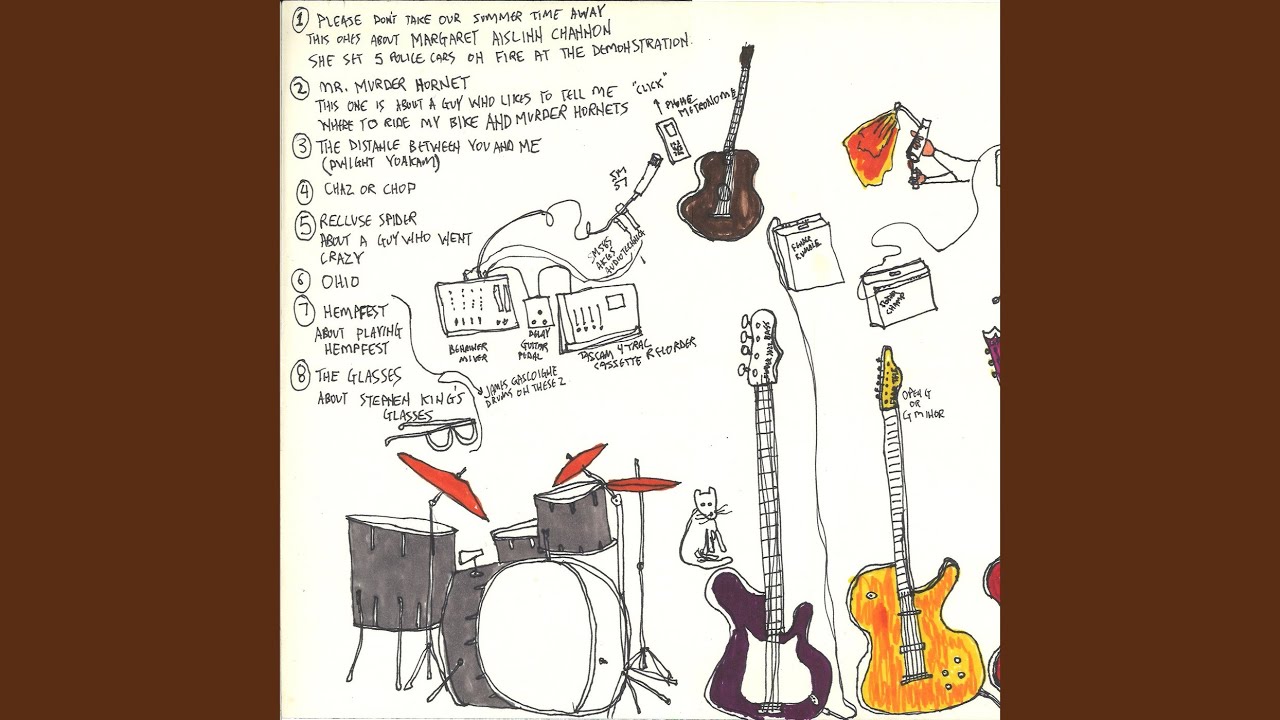 ① PLEASE DON'T TAKE OUR SUMMER TIME AWAY
THIS ONES ABOUT MARGARET AISLINN CHANNON
SHE SET 5 POLICE CARS ON FIRE AT THE DEMONSTRATION.
② MR. MURDER HORNET
THIS ONE IS ABOUT A GUY WHO LIKES TO TELL ME
WHERE TO RIDE MY BIKE AND MURDER HORNETS
③ THE DISTANCE BETWEEN YOU AND ME
(DWIGHT YOAKAM)
④ CHAZ OR CHOP
⑤ RECLUSE SPIDER
ABOUT A GUY WHO WENT
CRAZY
⑥ OHIO
⑦ HEMPFEST
ABOUT PLAYING
HEMPFEST
⑧ THE GLASSES
ABOUT STEPHEN KING'S
GLASSES
JAMES GASCOIGNE
DRUMS ON THESE 2
"CLICK"
PHONE
METRONOME
SM
57
SM58S
AKGS
AUDIOTECHNICA
BEHRINGER
MIXER
DELAY
GUITAR
PEDAL
TASCAM 4 TRAC
CASSETTE RECORDER
FENDER
RUMBLE
CHAMP
FENDER JAZZ BASS
OPEN G
OR
G MINOR